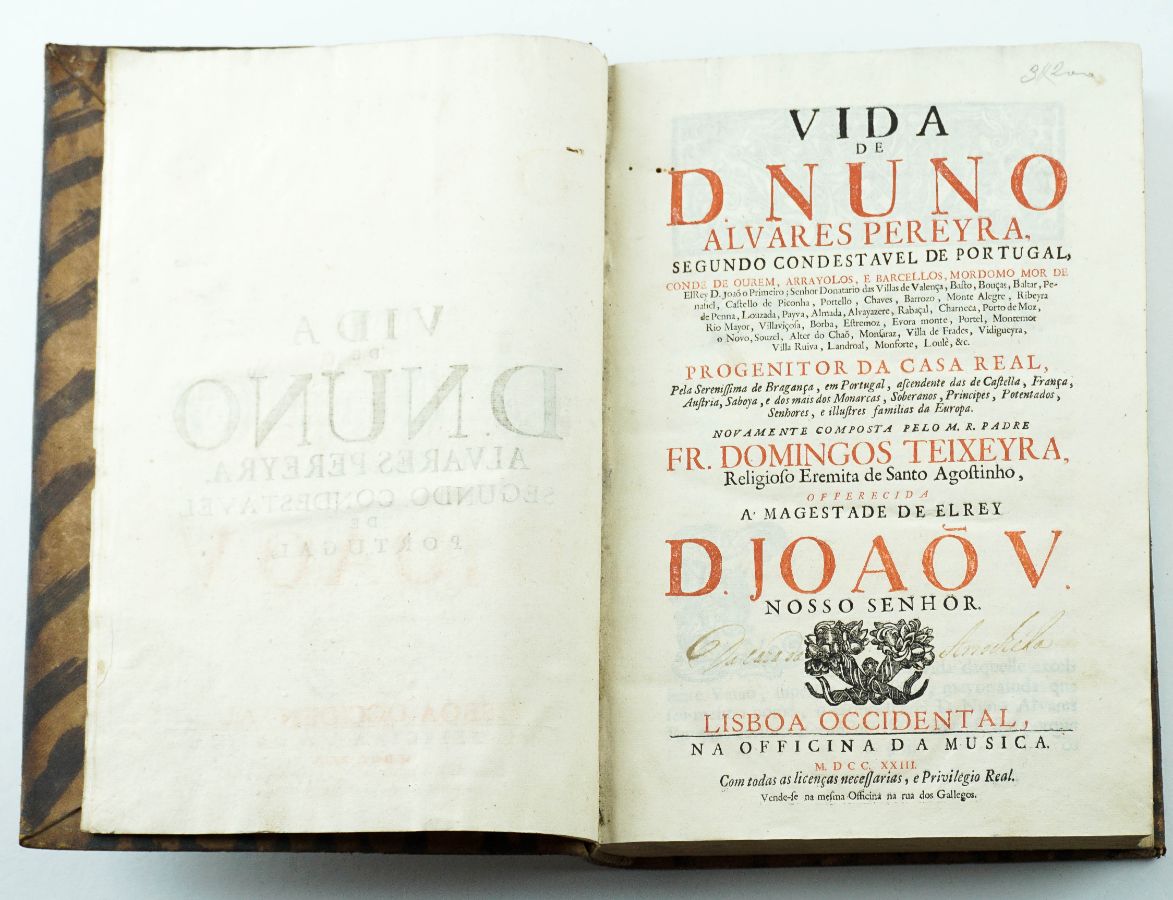 VIDA
DE
D. NUNO
ALVARES PEREYRA,
SEGUNDO CONDESTAVEL DE PORTUGAL,
CONDE DE OUREM, ARRAYOLOS, E BARCELLOS, MORDOMO MOR DE
ElRey D. Joaõ o Primeiro; Senhor Donatario das Villas de Valença, Basto, Bouças, Baltar, Pe-
nafiel, Castello de Piconha, Portello, Chaves, Barrozo, Monte Alegre, Ribeyra
de Penna, Louzada, Payva, Almada, Alvayazere, Rabaçal, Charneca, Porto de Moz,
Rio Mayor, Villaviçoſa, Borba, Eſtremoz, Evora monte, Portel, Montemor
o Novo, Souzel, Alter do Chaõ, Monſaraz, Villa de Frades, Vidigueyra,
Villa Ruiva, Landroal, Monforte, Loulè, &c.
PROGENITOR DA CASA REAL,
Pela Sereniſſima de Bragança, em Portugal, aſcendente das de Caſtella, França,
Auſtria, Saboya, e dos mais dos Monarcas, Soberanos, Principes, Potentados,
Senhores, e illuſtres familias da Europa.
NOVAMENTE COMPOSTA PELO M. R. PADRE
FR. DOMINGOS TEIXEYRA,
Religioſo Eremita de Santo Agoſtinho,
OFFERECIDA
A' MAGESTADE DE ELREY
D. JOAÕ V.
NOSSO SENHOR.
LISBOA OCCIDENTAL,
NA OFFICINA DA MUSICA.
M. DCC. XXIII.
Com todas as licenças neceſſarias, e Privilegio Real.
Vende-ſe na meſma Officina na rua dos Gallegos.